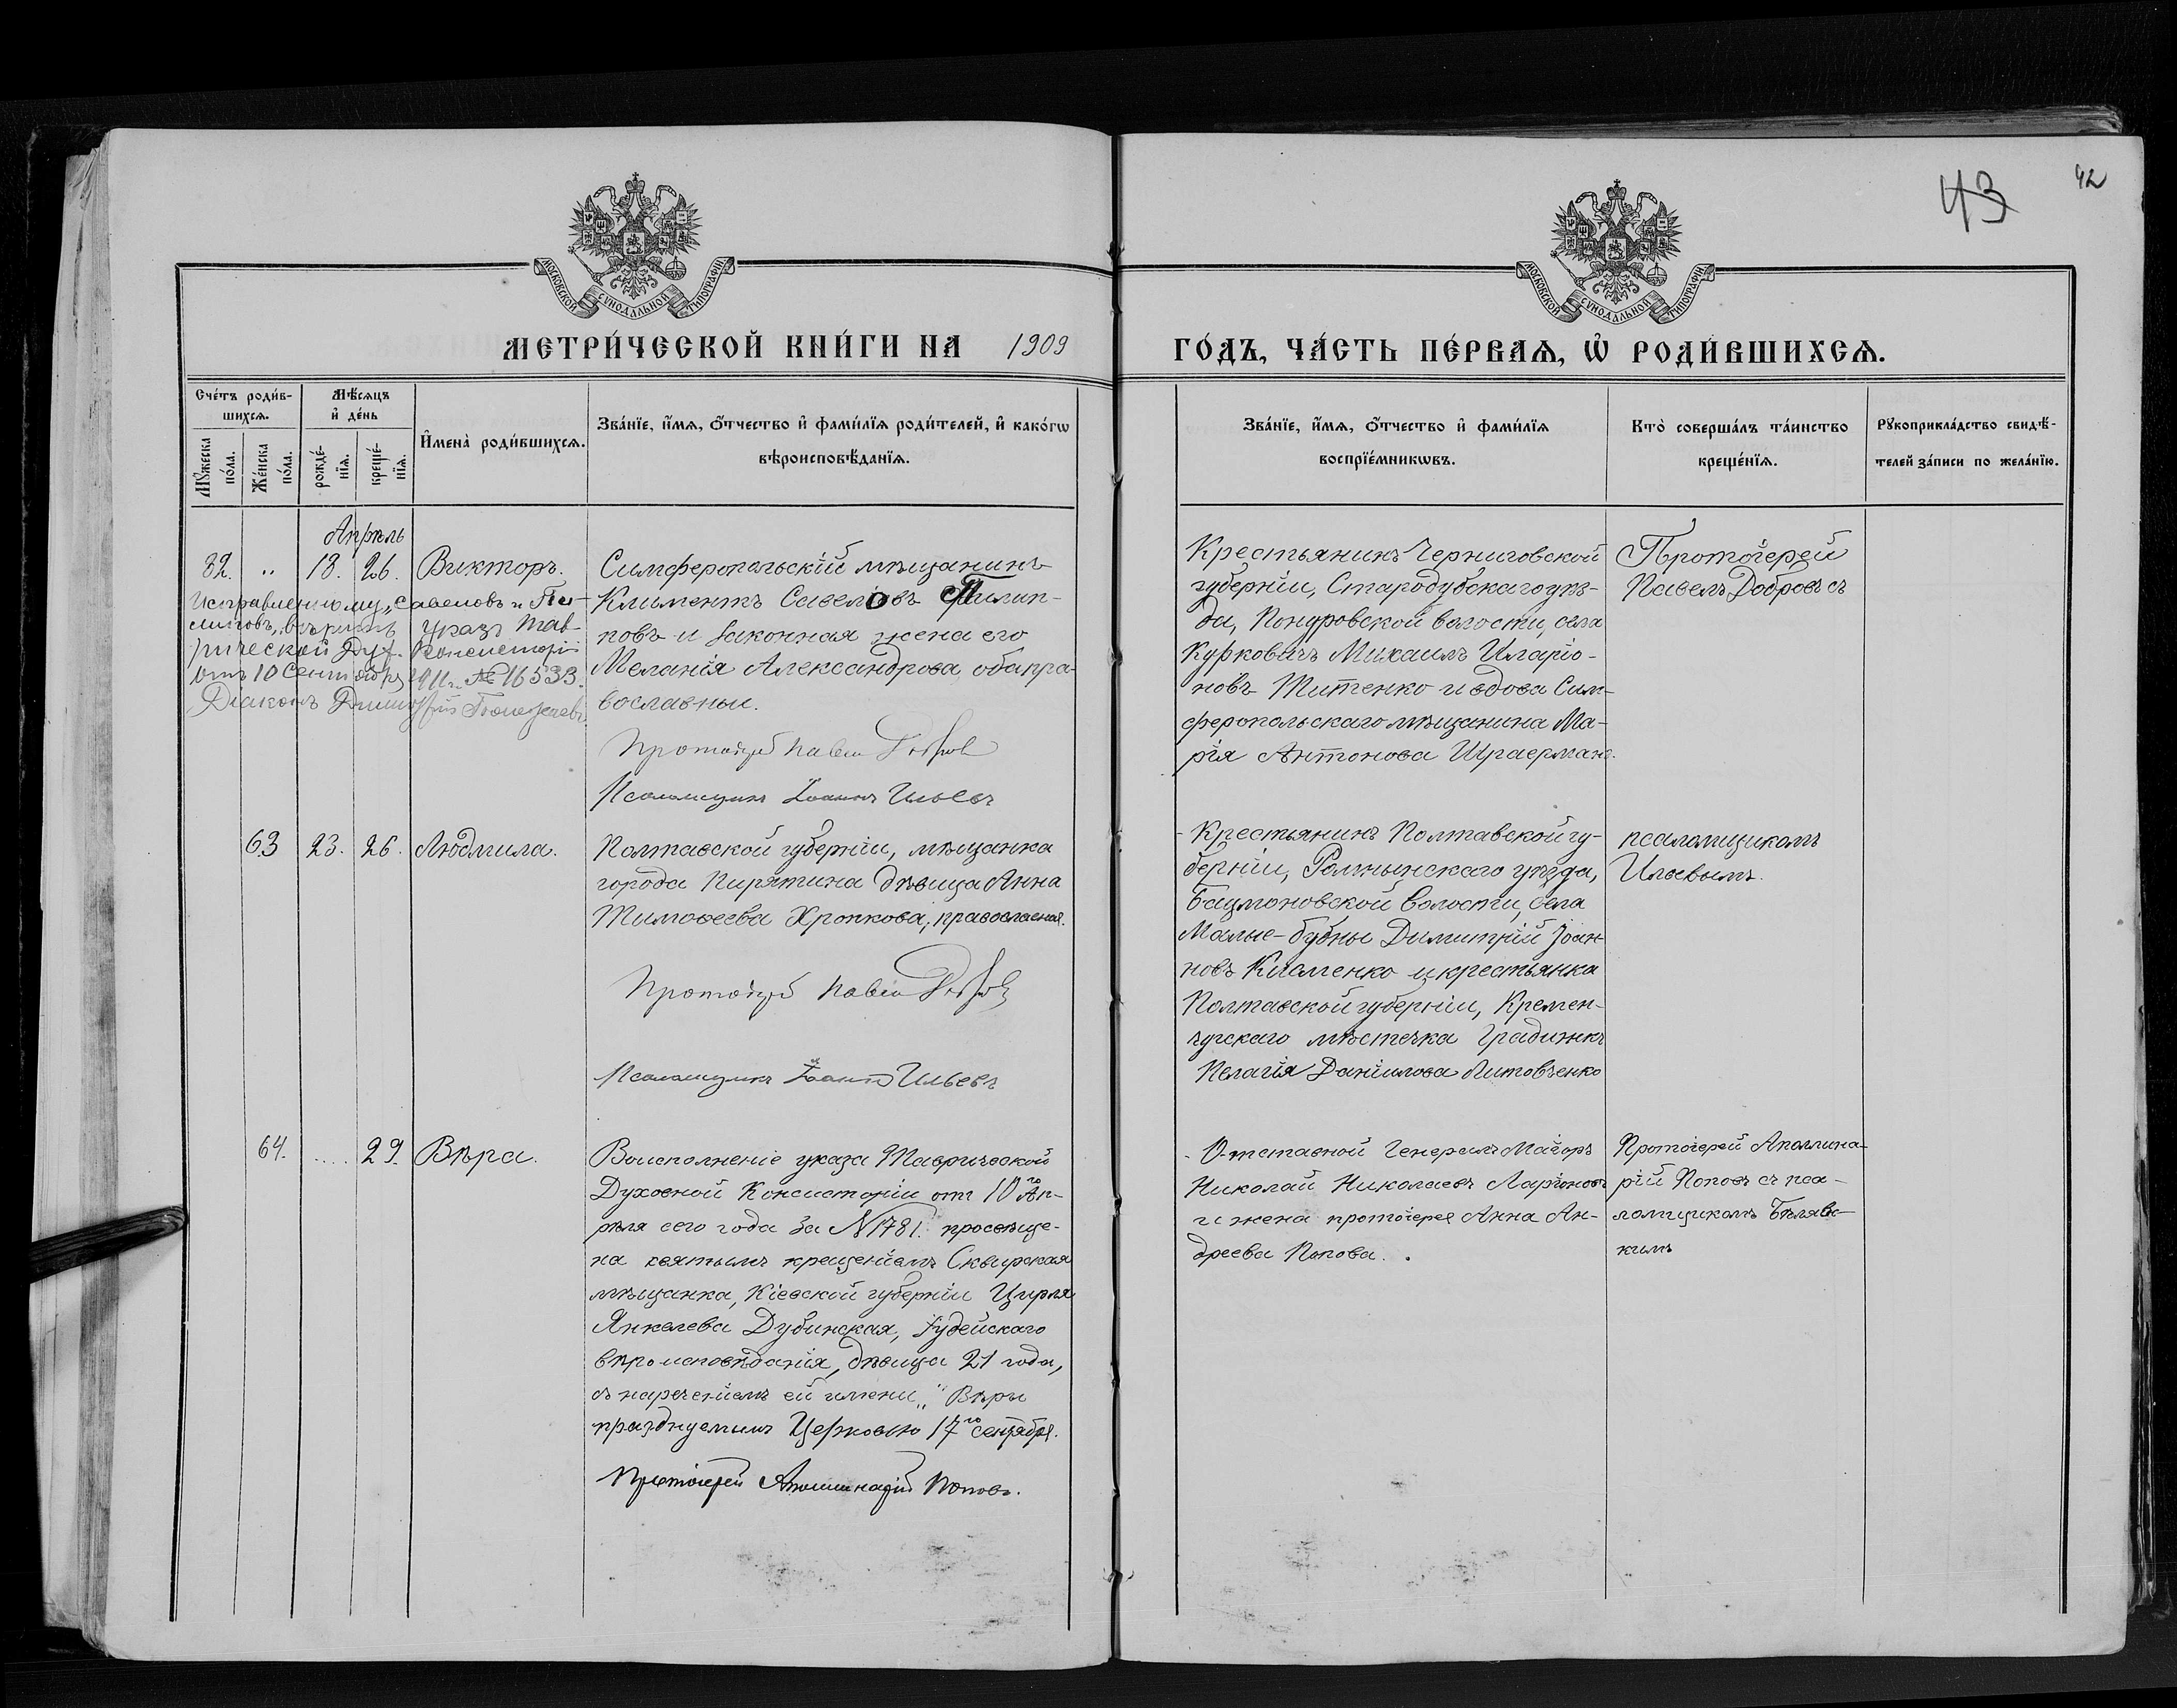 43
42
МОСКОВСКОЙ СѴНОДАЛЬНОЙ ТИПОГРАФІИ
МОСКОВСКОЙ СѴНОДАЛЬНОЙ ТИПОГРАФІИ
МЕТРИ́ЧЕСКОЙ КНИ́ГИ НА 1909
ГО́ДЪ, ЧА́СТЬ ПЕ́РВАѦ, Ѡ҆ РОДИ́ВШИХСѦ.
Сче́тъ роди́в-
шихсѧ.
Мꙋ́жеска
по́ла.
Же́нска
по́ла.
Мѣ́сяцъ
и҆ де́нь
рожде́-
нїѧ.
креще́-
нїѧ.
И҆мена̀ роди́вшихсѧ.
Зва́нїе, и҆́мѧ, ѻ҆́тчество и҆ фами́лїѧ роди́телей, и҆ како́гѡ
вѣроисповѣ́данїѧ.
Зва́нїе, и҆́мѧ, ѻ҆́тчество и҆ фами́лїѧ
воспрїе́мникѡвъ.
Кто̀ соверша́лъ та́инство
креще́нїѧ.
Рꙋкоприкла́дство свидѣ́-
телей за́писи по жела́нїю.
Апрѣль
82. " 18. 26. Викторъ.
Исправленному „Савеловъ и Пи-
липовъ„ вѣрить указъ Тав-
рической Дух. Консисторіи
отъ 10 Сентября 1911 г. № 16533.
Діаконъ
Симферопольскій мѣщанинъ
Климентъ Савеловъ Пилип-
повъ и законная жена его
Меланія Александрова, оба пра-
вославные.
Протоіерей Павелъ Добровъ
Псаломщикъ Іоаннъ Ильевъ
Крестьянинъ Черниговской
губерніи, Стародубскаго уѣз-
да, Понуровской волости, села
Курковичъ Михаилъ Иларіо-
новъ Титенко и вдова Сим-
феропольскаго мѣщанина Ма-
рія Антонова Шраерманъ.
Протоіерей
Павелъ Добровъ съ
63 23. 26. Людмила.
Полтавской губерніи, мѣщанка
города Пирятина дѣвица Анна
Тимоѳеева Хропкова, православная.
Протоіерей Павелъ Добровъ
Псаломщикъ Іоаннъ Ильевъ
Крестьянинъ Полтавской гу-
берніи, Роменскаго уѣзда,
Бацмановской волости, села
Малые-Бубны Димитрій Іоан-
новъ Кисменко и крестьянка
Полтавской губерніи, Кремен-
чугскаго мѣстечка Градижкъ
Пелагія Даніилова Литовченко
псаломщикомъ
Ильевымъ.
64. .... 29. Вѣра.
Воисполненіе указа Таврической
Духовной Консисторіи отъ 10го Ап-
рѣля сего года за N 1781. просвѣще-
на святымъ крещеніемъ Сквирская
мѣщанка, Кіевской губерніи Цирля
Янкелева Дубинская, іудейскаго
вѣроисповѣданія, дѣвица 21 года,
съ нареченіемъ ей имени „Вѣры"
празднуемымъ Церковью 17го сентября.
Протоіерей Аполлинарій Поповъ.
Отставной Генералъ Маіоръ
Николай Николаевъ Ларіоновъ
и жена протоіерея Анна Ан-
дреева Попова.
Протоіерей Аполлина-
рій Поповъ съ пса-
ломщикомъ Бѣлявс-
кимъ